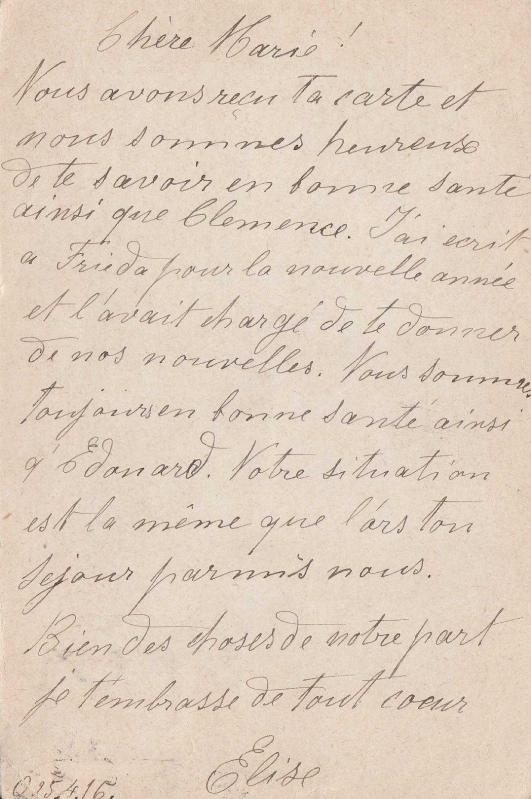 Chère Marie !
Nous avons reçu ta carte et
nous sommes heureux
de te savoir en bonne santé
ainsi que Clemence. J'ai ecrit
a Frieda pour la nouvelle année
et l'avait chargé de te donner
de nos nouvelles. Nous sommes
toujours en bonne santé ainsi
q' Edouard. Notre situation
est la même que l'ors ton
sejour parmis nous.
Bien des choses de notre part
je t'embrasse de tout coeur
Elise
25.4.16.